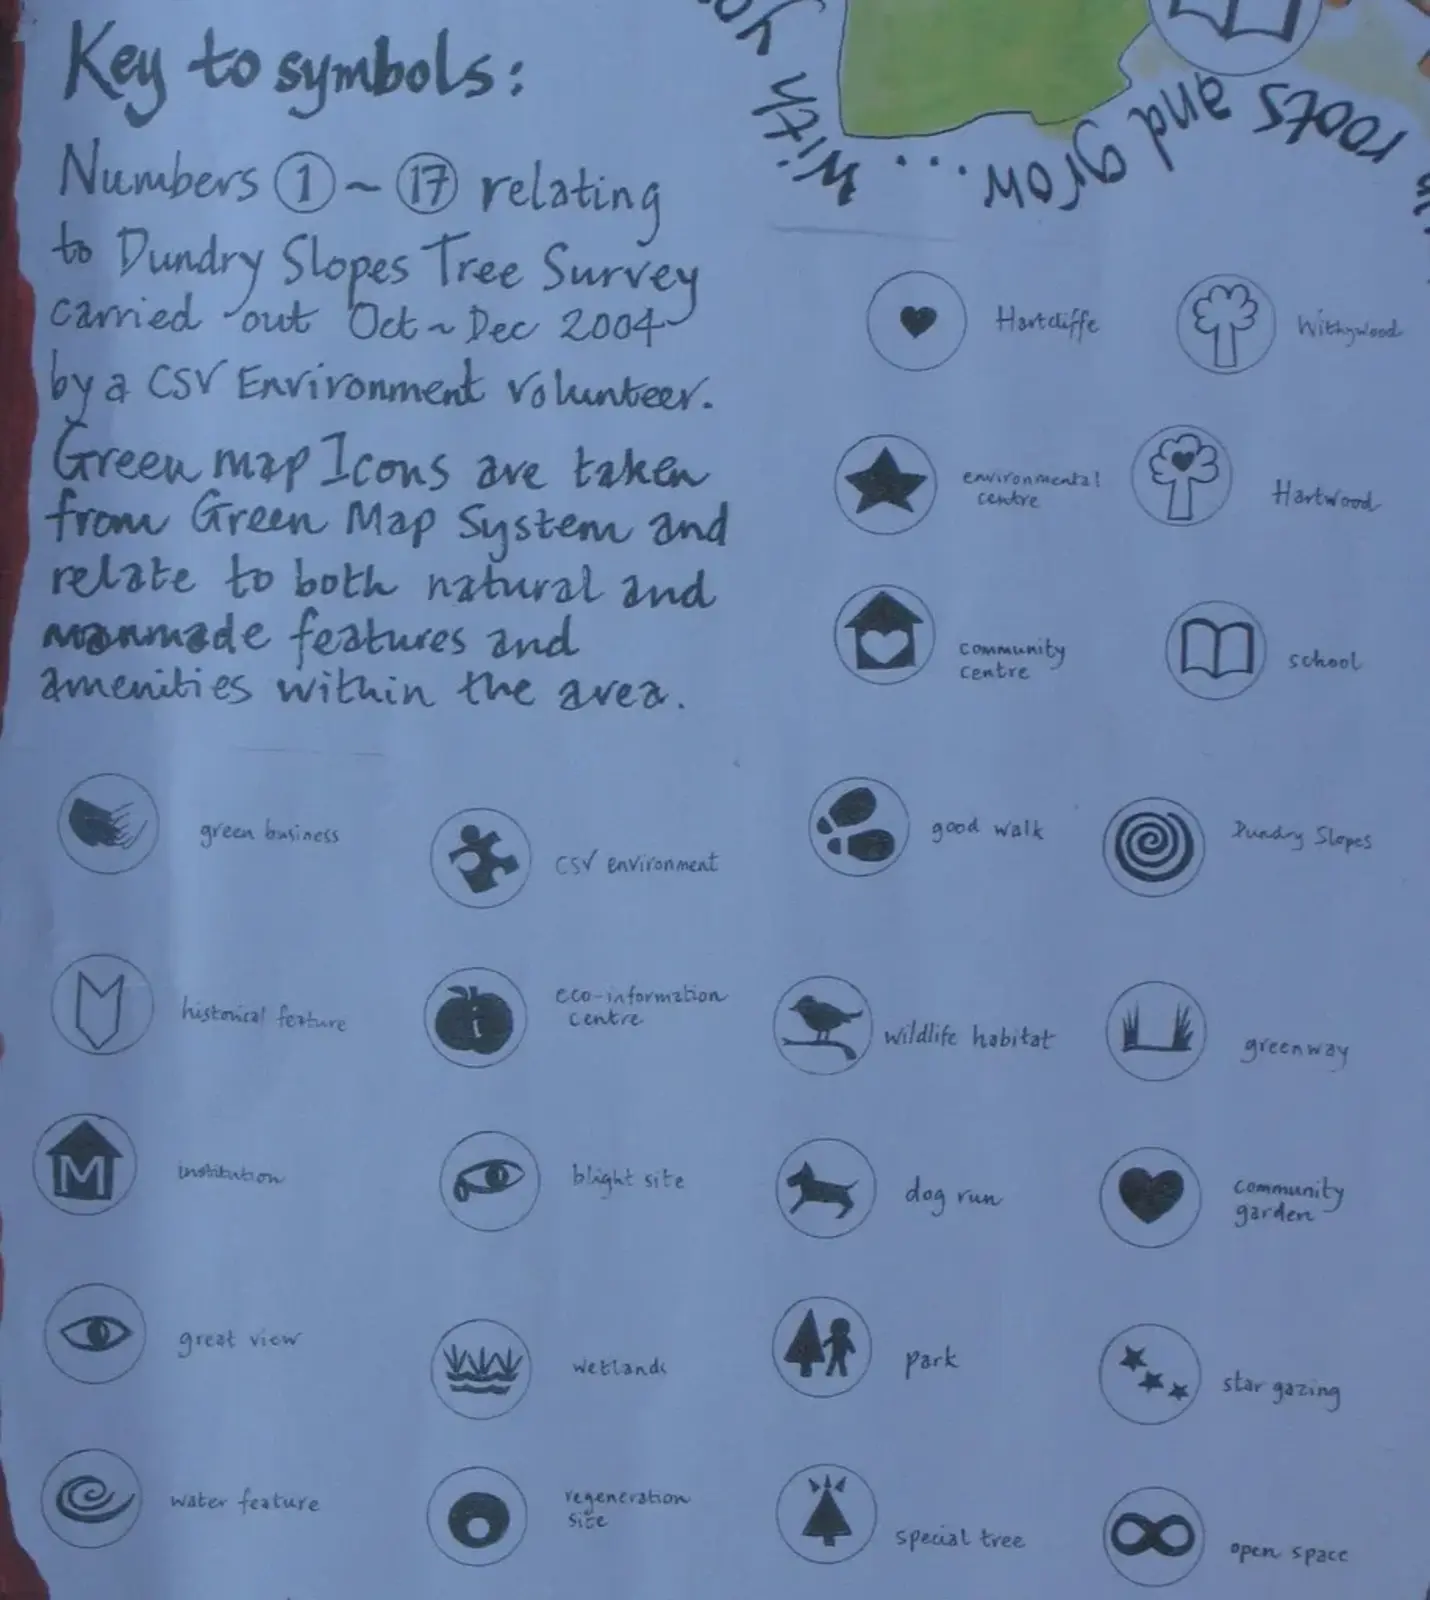 Key to symbols:
Numbers 1 ~ 17 relating
to Dundry Slopes Tree Survey
carried out Oct ~ Dec 2004
by a CSV Environment volunteer.
Green map Icons are taken
from Green Map System and
relate to both natural and
manmade features and
amenities within the area.
roots and grow... with
Hartcliffe
Withywood
environmental
centre
Hartwood
community
centre
school
green business
CSV environment
good walk
Dundry Slopes
historical feature
eco-information
centre
i
wildlife habitat
greenway
M
institution
blight site
dog run
community
garden
great view
wetlands
park
star gazing
water feature
regeneration
site
special tree
open space